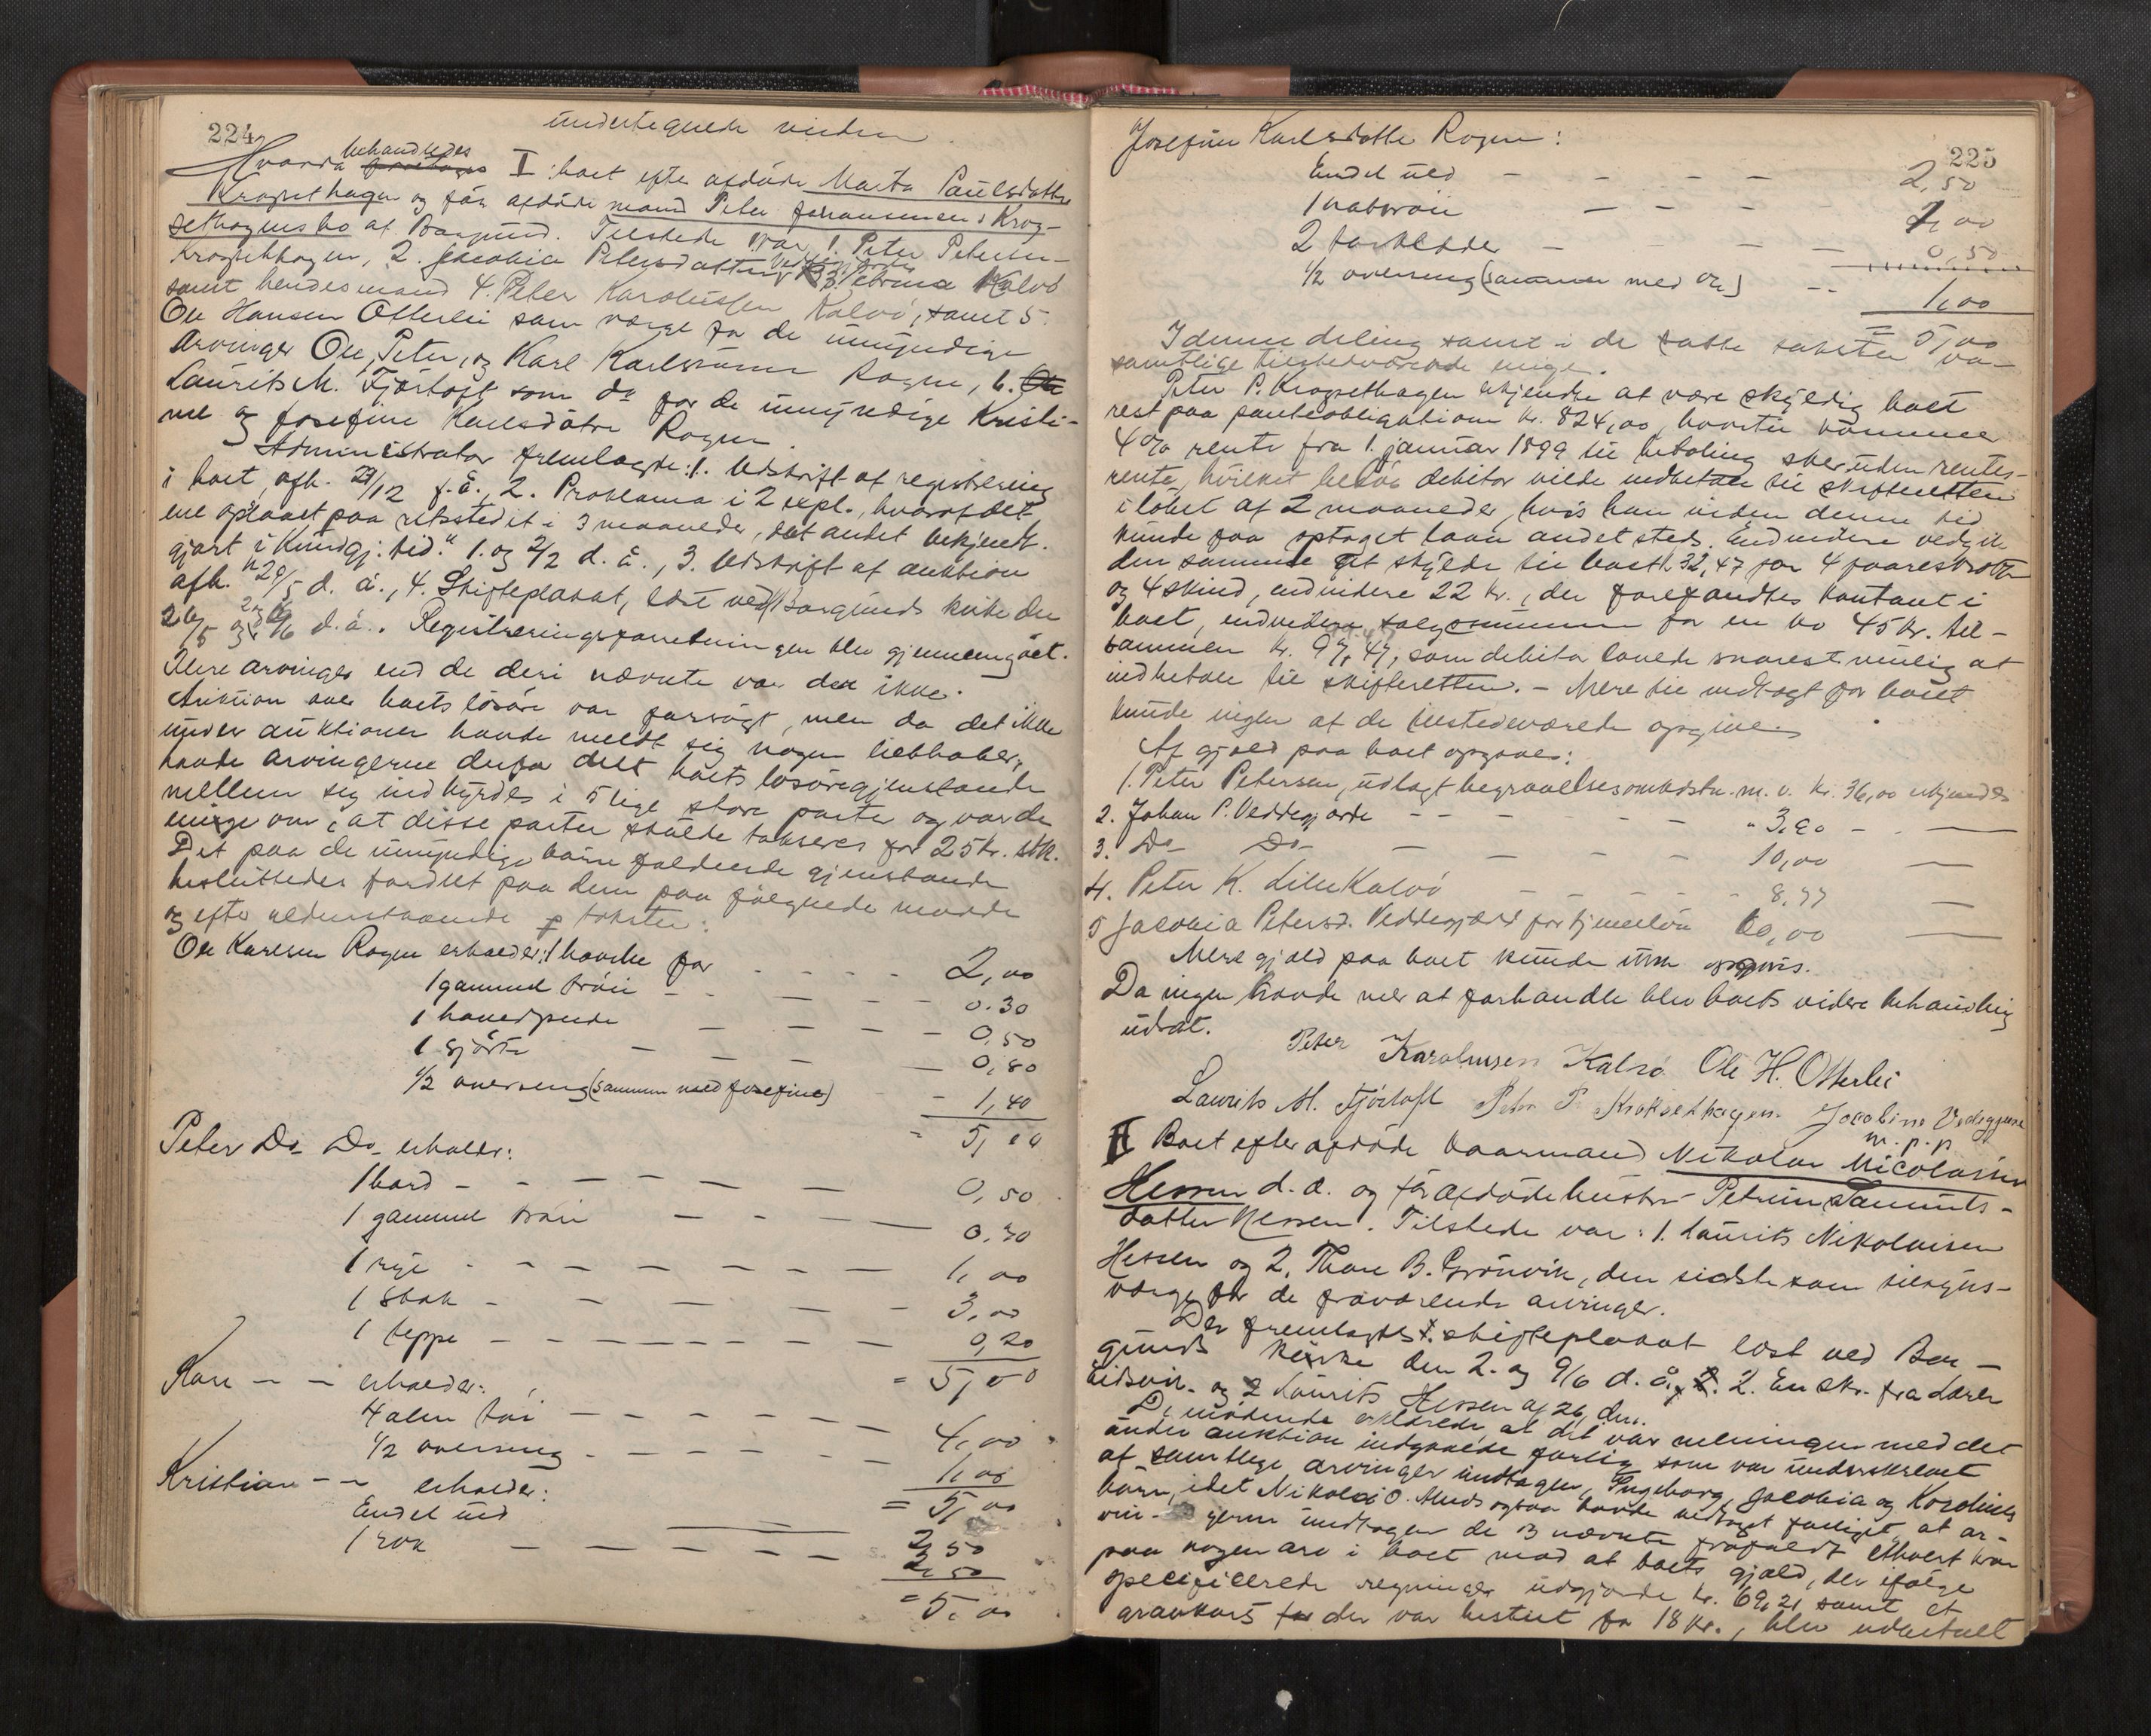 224
undertegnede vidner
Hvorda behandledes I: boet efter afdöde Marta Paulsdatter
Krogsethagen og før afdöde mand Peter Johannesen Krog-
sethagens bo af Borgund. Tilstede var 1. Peter Petersen
Krogsethagen, 2. Jacobia Petersdatter 3. Petrina Kalvö
samt hendes mand 4. Peter Karolussen Kalvö, samt 5.
Ole Hansen Otterlei som værge for de umyndige
Arvinger Ole, Peter, og Karl Karlssönner Rogne, 6.
Laurits M. Fjörtoft som do for de umyndige Kristi-
ne og Josefine Karlsdötre Rogne.
Administrator fremlagde: 1. Udskrift af registrering
i boet, afh. 29/12 f.å., 2. Proklama i 2 expl., hvoraf det
ene opslaaet paa retsstedet i 3 maaneder, det andet bekjendt-
gjort i "Kundgj. tid." 1. og 2/2 d. å., 3. Udskrift af auktion
afh. 29/5 d. å., 4. Skifteplakat, læst ved Borgunds kirke den
26/5 og 2/6 d.å. Registreringsforretningen blev gjennemgået.
Flere arvinger end de deri nævnte var der ikke.
Auktion over boets lösöre var forsögt, men da det ikke
under auktionen havde meldt sig nogen liebhaber,
havde arvingerne derfor delt boets lösöregjenstande
mellem sig indbyrdes i 5 lige store parter og var de
enige om, at disse parter skulde takseres for 25 kr. stk.
Det paa de umyndige börn faldende gjenstande
besluttedes fordelt paa dem paa fölgende maade
og efter nedenstaaende takster:
Ole Karlsen Rogne erholder: 1 for - - - - 2,00
1 gammel tröie - - - - - 0.30
1 hovedpude - - - - 0,50
1 - - - - 0,80
1/2 overseng (sammen med Josefine) - 1,40
= 5,00
Peter Do Do erholder:
1 bord - - - - - - 0,50
1 gammel tröie - - - - 0,30
1 rye - - - - - - 1,00
1 stak - - - - - 3,00
1 teppe - - - - - - 0,20
= 5,00
Karl - - erholder:
4 alen töi - - - - - 4,00
1/2 overseng - - - - - 1,00
= 5,00
Kristian - - erholder:
Endel uld 2,50
1 rok - - - - - 2,50
= 5,00
225
Josefine Karlsdatter Rogne:
Endel uld - - - - 2,50
1 nattröie - - - - 1,00
2 forklæder - - - 0,50
1/2 overseng (sammen med Ole) - - 1,00
= 5,00
I denne deling samt i de satte takster va-
samtlige tilstedeværende enige.
Peter P. Krogsethagen erkjendte at være skyldig boet
rest paa panteobligation kr. 824,00, hvortil kommer
4% rente fra 1. januar 1899 til betaling sker uden rentes-
rente, hvilket belöb debitor vilde indbetale til skifteretten
i löbet af 2 maaneder, hvis han inden denne tid
kunde faa optaget laan andetsteds. Endvidere vedgik
den samme at skylde til boet kr. 32,47 for 4 faareskrotter
og 4 skind, endvidere 22 kr., der forefandtes kontant i
boet, endvidere salgssummen for en ko 45 kr. til-
sammen kr. 97,47, som debitor lovede snarest mulig at
indbetale til skifteretten. - Mere til indtægt for boet
kunde ingen af de tilstedeværende opgive.
Af gjæld paa boet opgaves:
1. Peter Petersen, udlagt begravelsesomkostn. m. v. kr. 36,00 erkjendes
2. Johan P. Veddegjærde - - - - - " 3,20 -
3. Do Do - - - - 10,00 -
4. Peter K. Lille Kalvö - - - - - 8,77 -
5 Jacobia Petersd. Veddegjærde for tjenestelön 60,00 -
Mere gjæld paa boet kunde ikke opgives.
Da ingen havde mer at forhandle blev boets videre behandling
udsat.
Peter Karolusen Kalvø Ole H. Otterlei
Laurits M. Fjörtoft Peter P Kroksethagen Jacobine Vedegjerde
m. p. p.
II Boet efter afdöde kaarmand Nikolai Nicolaisen
Hessen d. æ. og för afdöde hustru Petrine Laurits-
datter Hessen. Tilstede var: 1. Laurits Nikolaisen
Hessen og 2. Thore B. Grönvik, den sidste som tilsyns-
værge for de fraværende arvinger.
Der fremlagdes 1. skifteplakat læst ved Bor-
gunds kirke den 2. og 9/6 d. å., 2. En skr. fra Lærer
Eidsvik og Laurits Hessen af 26 dns.
De mödende erklærede, at det var meningen med det
under auktion indgaaede forlig som var underskrevet
af samtlige arvinger undtagen, Ingeborg, Jacobia og Karolines
börn, idet Nikolai O. Aluds ogsaa havde vedtaget forliget, at ar-
vin- gerne undtagen de 3 nævnte frafaldt ethvert krav
paa nogen arv i boet mod at boets gjæld, der ifölge
specificerede regninger udgjorde kr. 69,21 samt et
gravkors der var bestilt for 18 kr., blev udbetalt